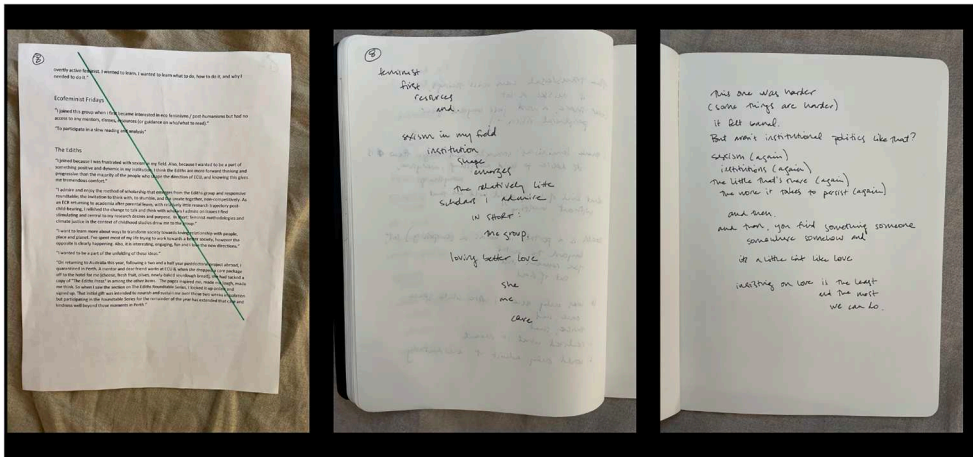 8
overtly active feminist. I wanted to learn, I wanted to learn what to do, how to do it, and why I
needed to do it."
Ecofeminist Fridays
"I joined this group when I first became interested in eco feminisms / post-humanisms but had no
access to any mentors, classes, resources (or guidance on who/what to read)."
"To participate in a slow reading and analysis"
The Ediths
"I joined because I was frustrated with sexism in my field. Also, because I wanted to be a part of
something positive and dynamic in my institution. I think the Ediths are more forward thinking and
progressive than the majority of the people who shape the direction of ECU, and knowing this gives
me tremendous comfort."
"I admire and enjoy the method of scholarship that emerges from the Edith group and responsive
roundtables: the invitation to think with, to stumble, and to create together, non-competitively. As
an ECR returning to academia after parental leave, with relatively little research trajectory post
child-bearing, I relished the change to talk and think with scholars I admire on issues I find
stimulating and central to my research desires and purpose. In short: feminist methodologies and
climate justice in the context of childhood studies drew me to the group."
"I want to learn more about ways to transform society towards loving relationship with people,
place and planet. I've spent most of my life trying to work towards a better society, however the
opposite is clearly happening. Also, it is interesting, engaging, fun and I love the new directions."
"I wanted to be a part of the unfolding of those ideas."
"On returning to Australia this year, following a two and a half year parent/child project abroad, I
quarantined in Perth. A mentor and dear friend works at ECU &, when she dropped a care package
off to the hotel for me (cheese, fresh fruit, olives, newly baked sourdough bread), she had tucked a
copy of "The Ediths Zines" in among the other items. The pages inspired me, made me laugh, made
me think. So when I saw the section on The Ediths Roundtable Series, I looked it up online and
signed up. That initial gift was intended to nourish and sustain me over those two weeks in isolation
but participating in the Roundtable Series for the remainder of the year has extended that care and
kindness well beyond those moments in Perth."
8
feminist
first
resources
and
sexism in my field
institution
shape
emerges
the relatively little
scholars i admire
in short:
the group.
loving better love
she
me
care
This one was harder
(some things are harder)
it felt banal.
But aren't institutional politics like that?
sexism (again)
institutions (again)
The little that's there (again)
The work it takes to persist (again)
and then.
and then, you find something someone
somewhere somehow and
it's a little bit like love
insisting on love is the least
and the most
we can do.